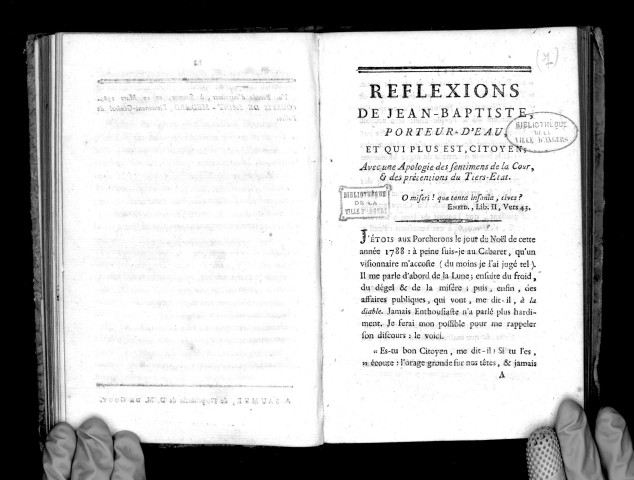 (7)
REFLEXIONS
DE JEAN-BAPTISTE,
PORTEUR-D'EAU,
ET QUI PLUS EST, CITOYEN;
Avec une Apologie des sentimens de la Cour,
& des prétentions du Tiers-Etat.
BIBLIOTHÈQUE
DE LA
VILLE D'ANGERS
O miseri ! quæ tanta insania, cives ?
ENEID., Lib. II, Vers 43.
BIBLIOTHÈQUE
DE LA
VILLE D'ANGERS
J'ÉTOIS aux Porcherons le jour du Noël de cette
année 1788 : à peine suis-je au Cabaret, qu'un
visionnaire m'accoste ( du moins je l'ai jugé tel ).
Il me parle d'abord de la Lune; ensuite du froid,
du dégel & de la misère ; puis, enfin, des
affaires publiques, qui vont, me dit-il, à la
diable. Jamais Enthousiaste n'a parlé plus hardi-
ment. Je ferai mon possible pour me rappeler
son discours : le voici.
« Es-tu bon Citoyen, me dit-il ? Si tu l'es,
» écoute : l'orage gronde sur nos têtes, & jamais
A